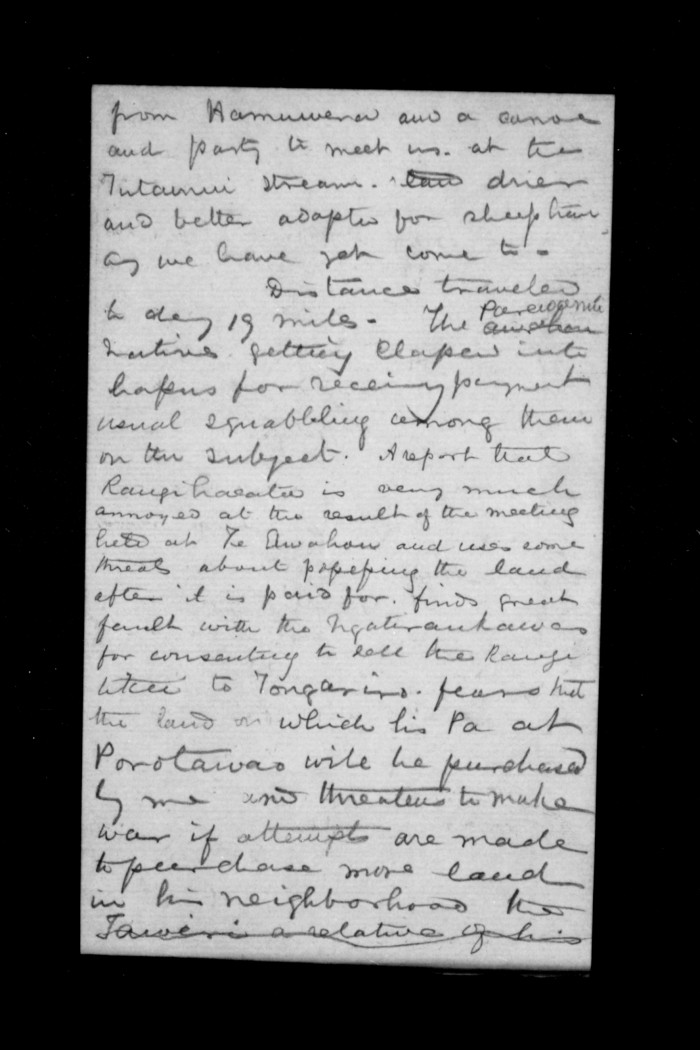 from Hamuwera and a canoe
and party to meet us. at the
Tutaunui stream. land drier
and better adapted for sheep than
any we have yet come to -
Distance traveled
to day 19 miles - The
natives getting Classed into
hapus for receiving payment
usual squabbling among them
on the subject. A report that
Rangihaeata is very much
annoyed at the result of the meeting
held at Te Awahou and uses some
threats about possessing the land
after it is paid for. finds great
fault with the Ngatiraukawas
for consenting to sell the Rangi
tikei to Tongariro. fears that
the land on which his Pa at
Porotawao will be purchased
by me and threatens to make
war if attempts are made
to purchase more land
in his neighborhood the
Taweri a relative of his